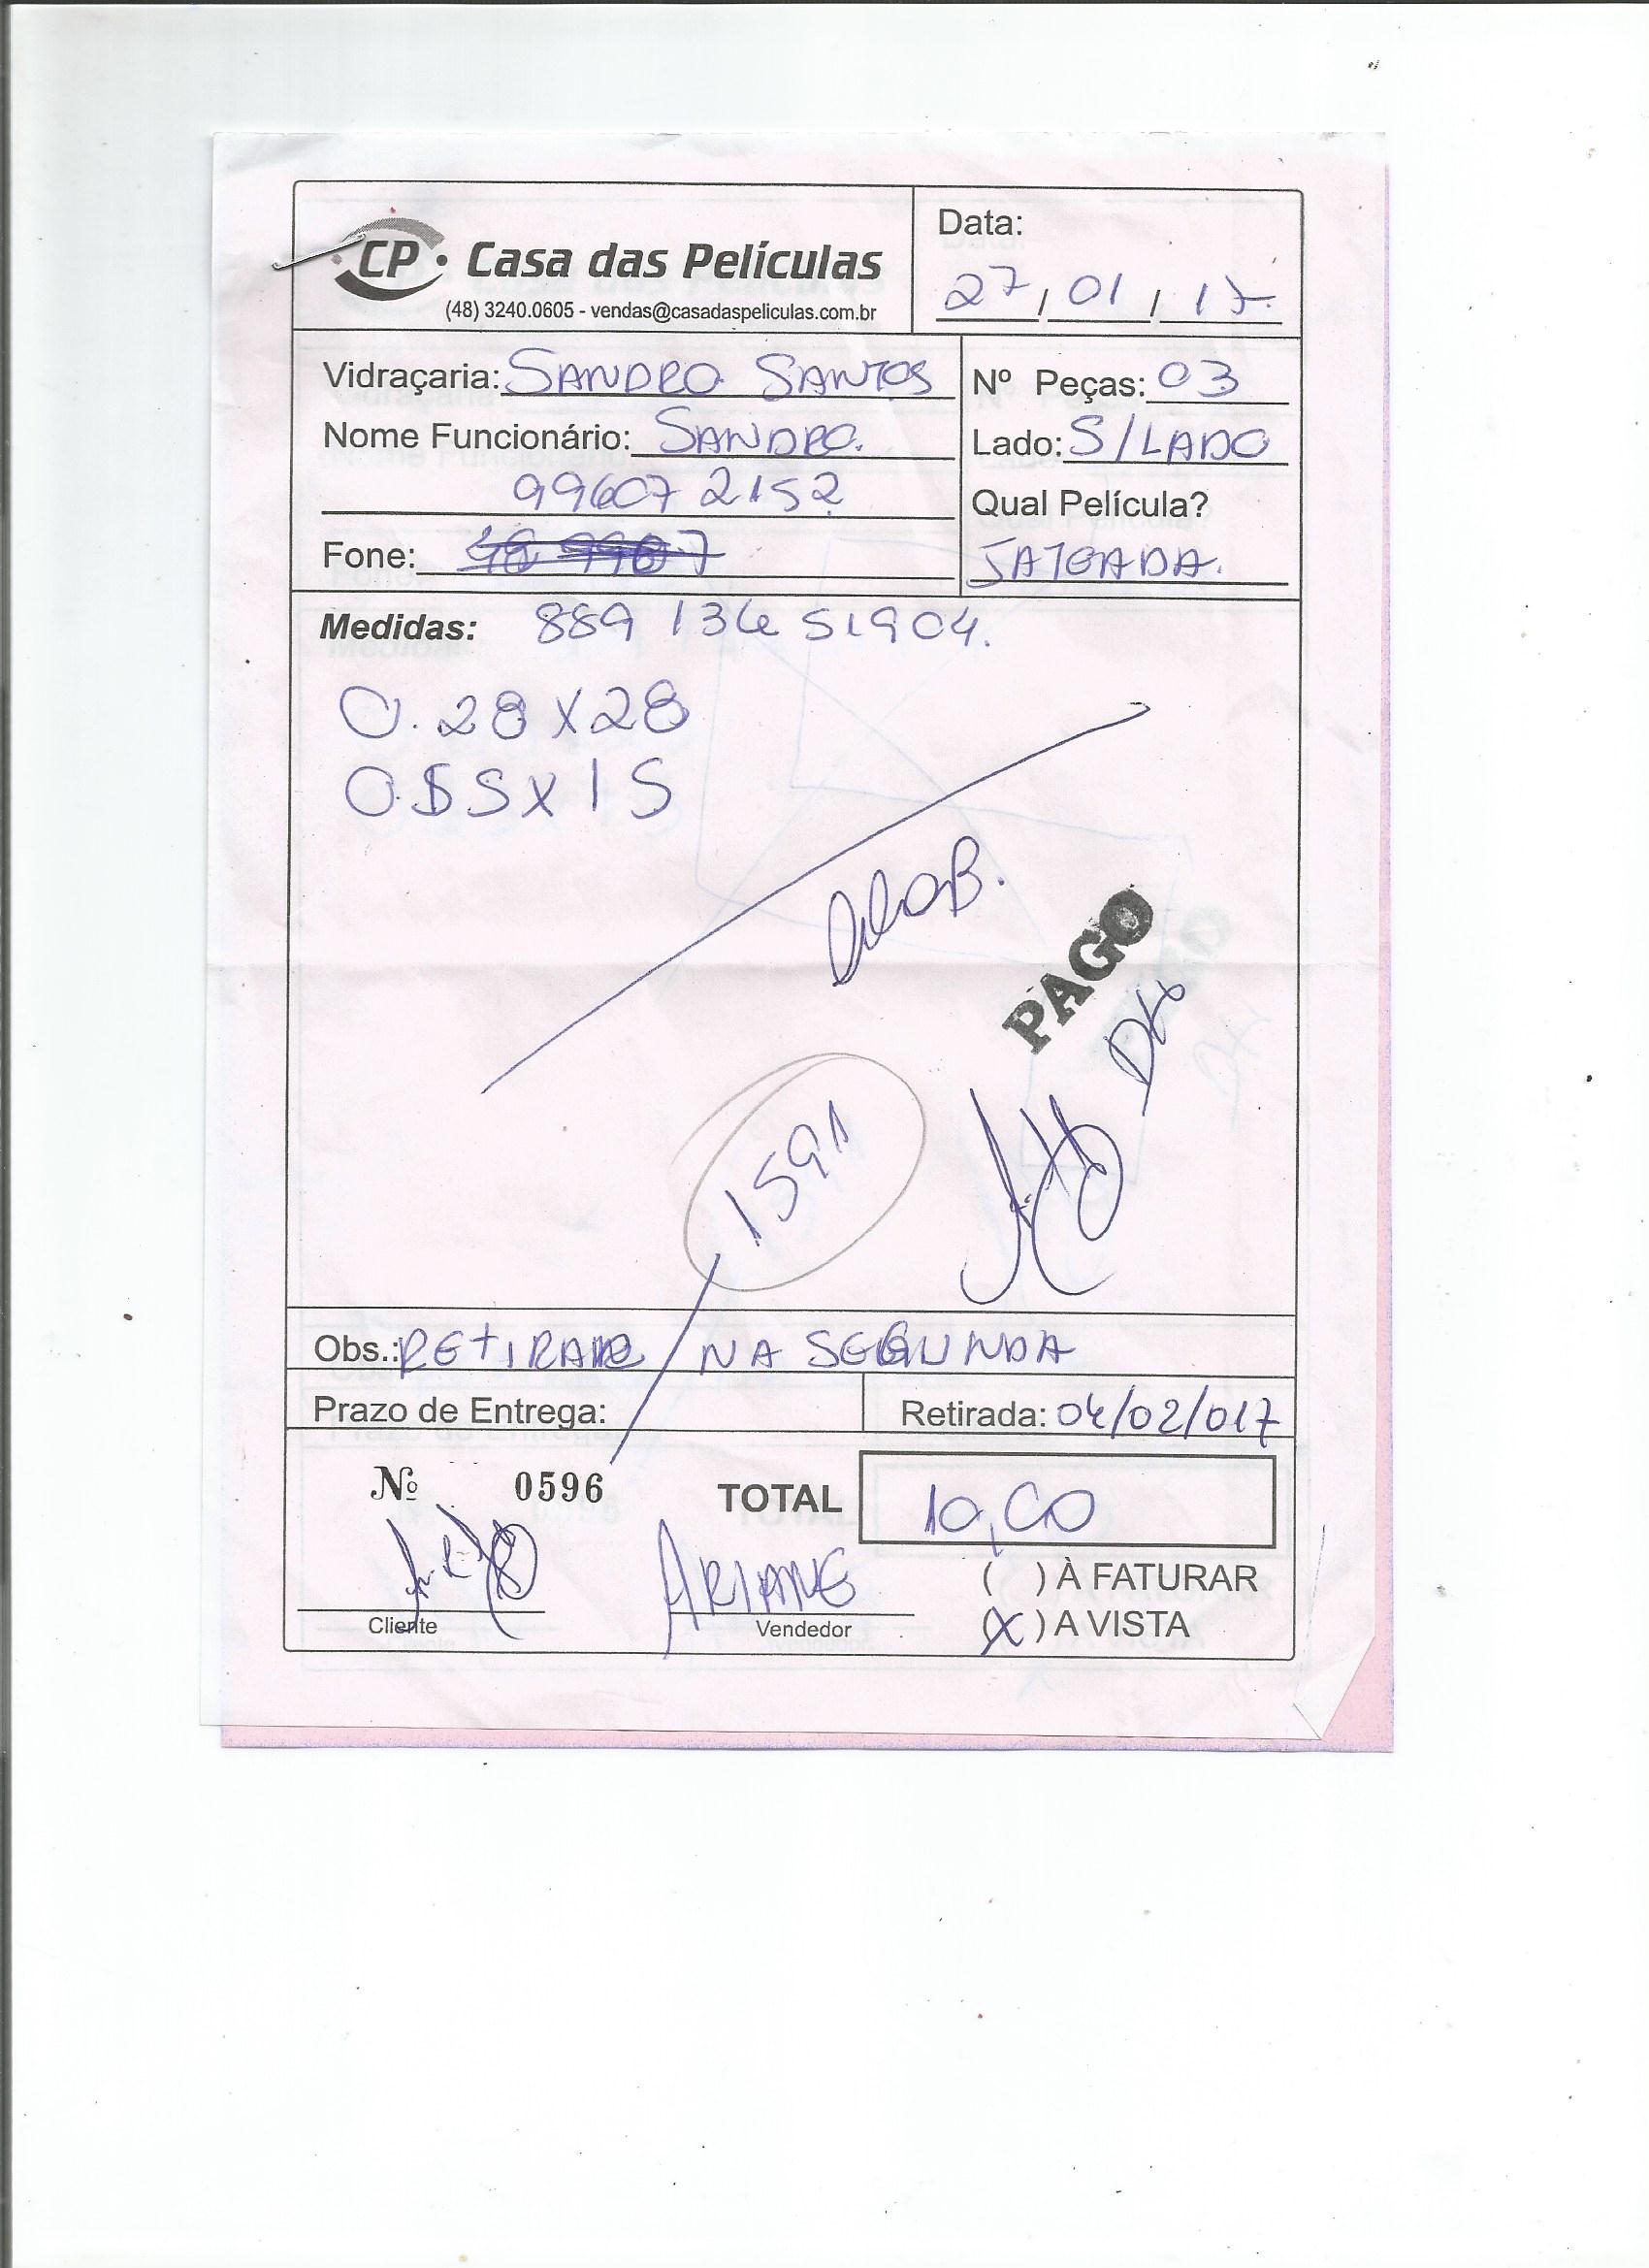 CP · Casa das Películas
(48) 3240.0605 - vendas@casadaspeliculas.com.br
Data:
27/01/17
Vidraçaria: SANDRO SANTOS
Nome Funcionário: SANDRO.
99607 2152
Fone:
Nº Peças: 03
Lado: S/LADO
Qual Película?
JATEADA.
Medidas: 889 134 51904.
0.28 x 28
x 15
PAGO
1591
Obs.: RETIRAR NA SEGUNDA
Prazo de Entrega:
Retirada: 04/02/017
Nº 0596
TOTAL 10,00
( ) À FATURAR
(X) A VISTA
Cliente
ARIANE
Vendedor